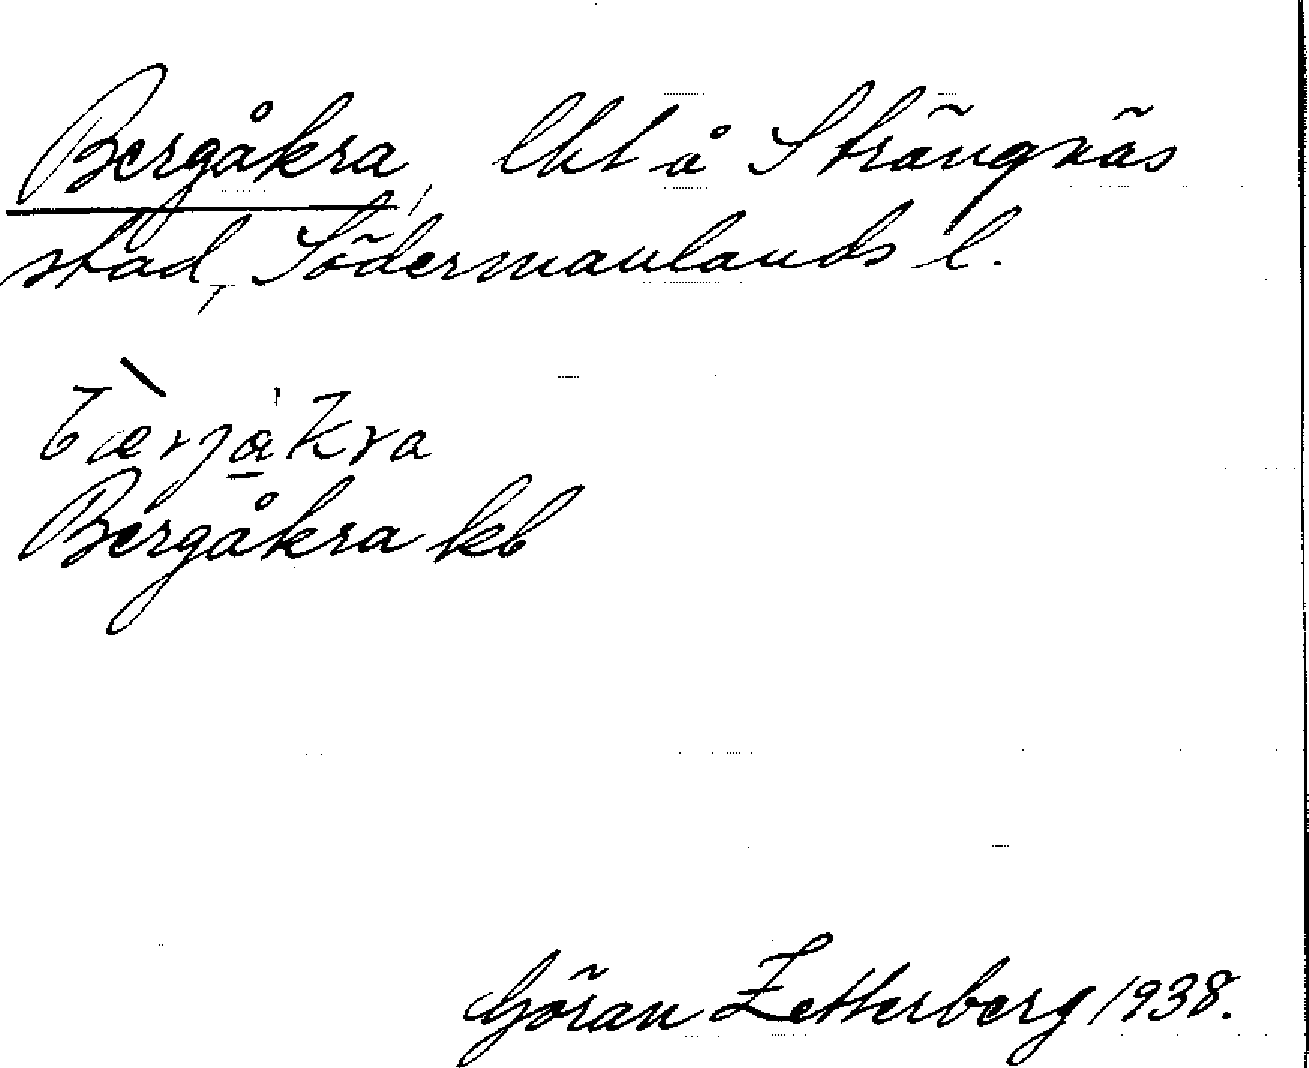 Bergåkra, lht å Strängnäs
stad, Södermanlands l.
bærjåkra
Bergåkra kb
Göran Zetterberg 1938.